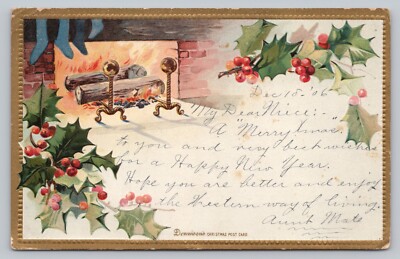 Dec 15 '06
My Dear Niece:-
A "Merry Xmas"
to you and very best wishes
for a Happy New Year.
Hope you are better and enjoy
the Western way of living.
Aunt Mate
Dennison's CHRISTMAS POST CARD